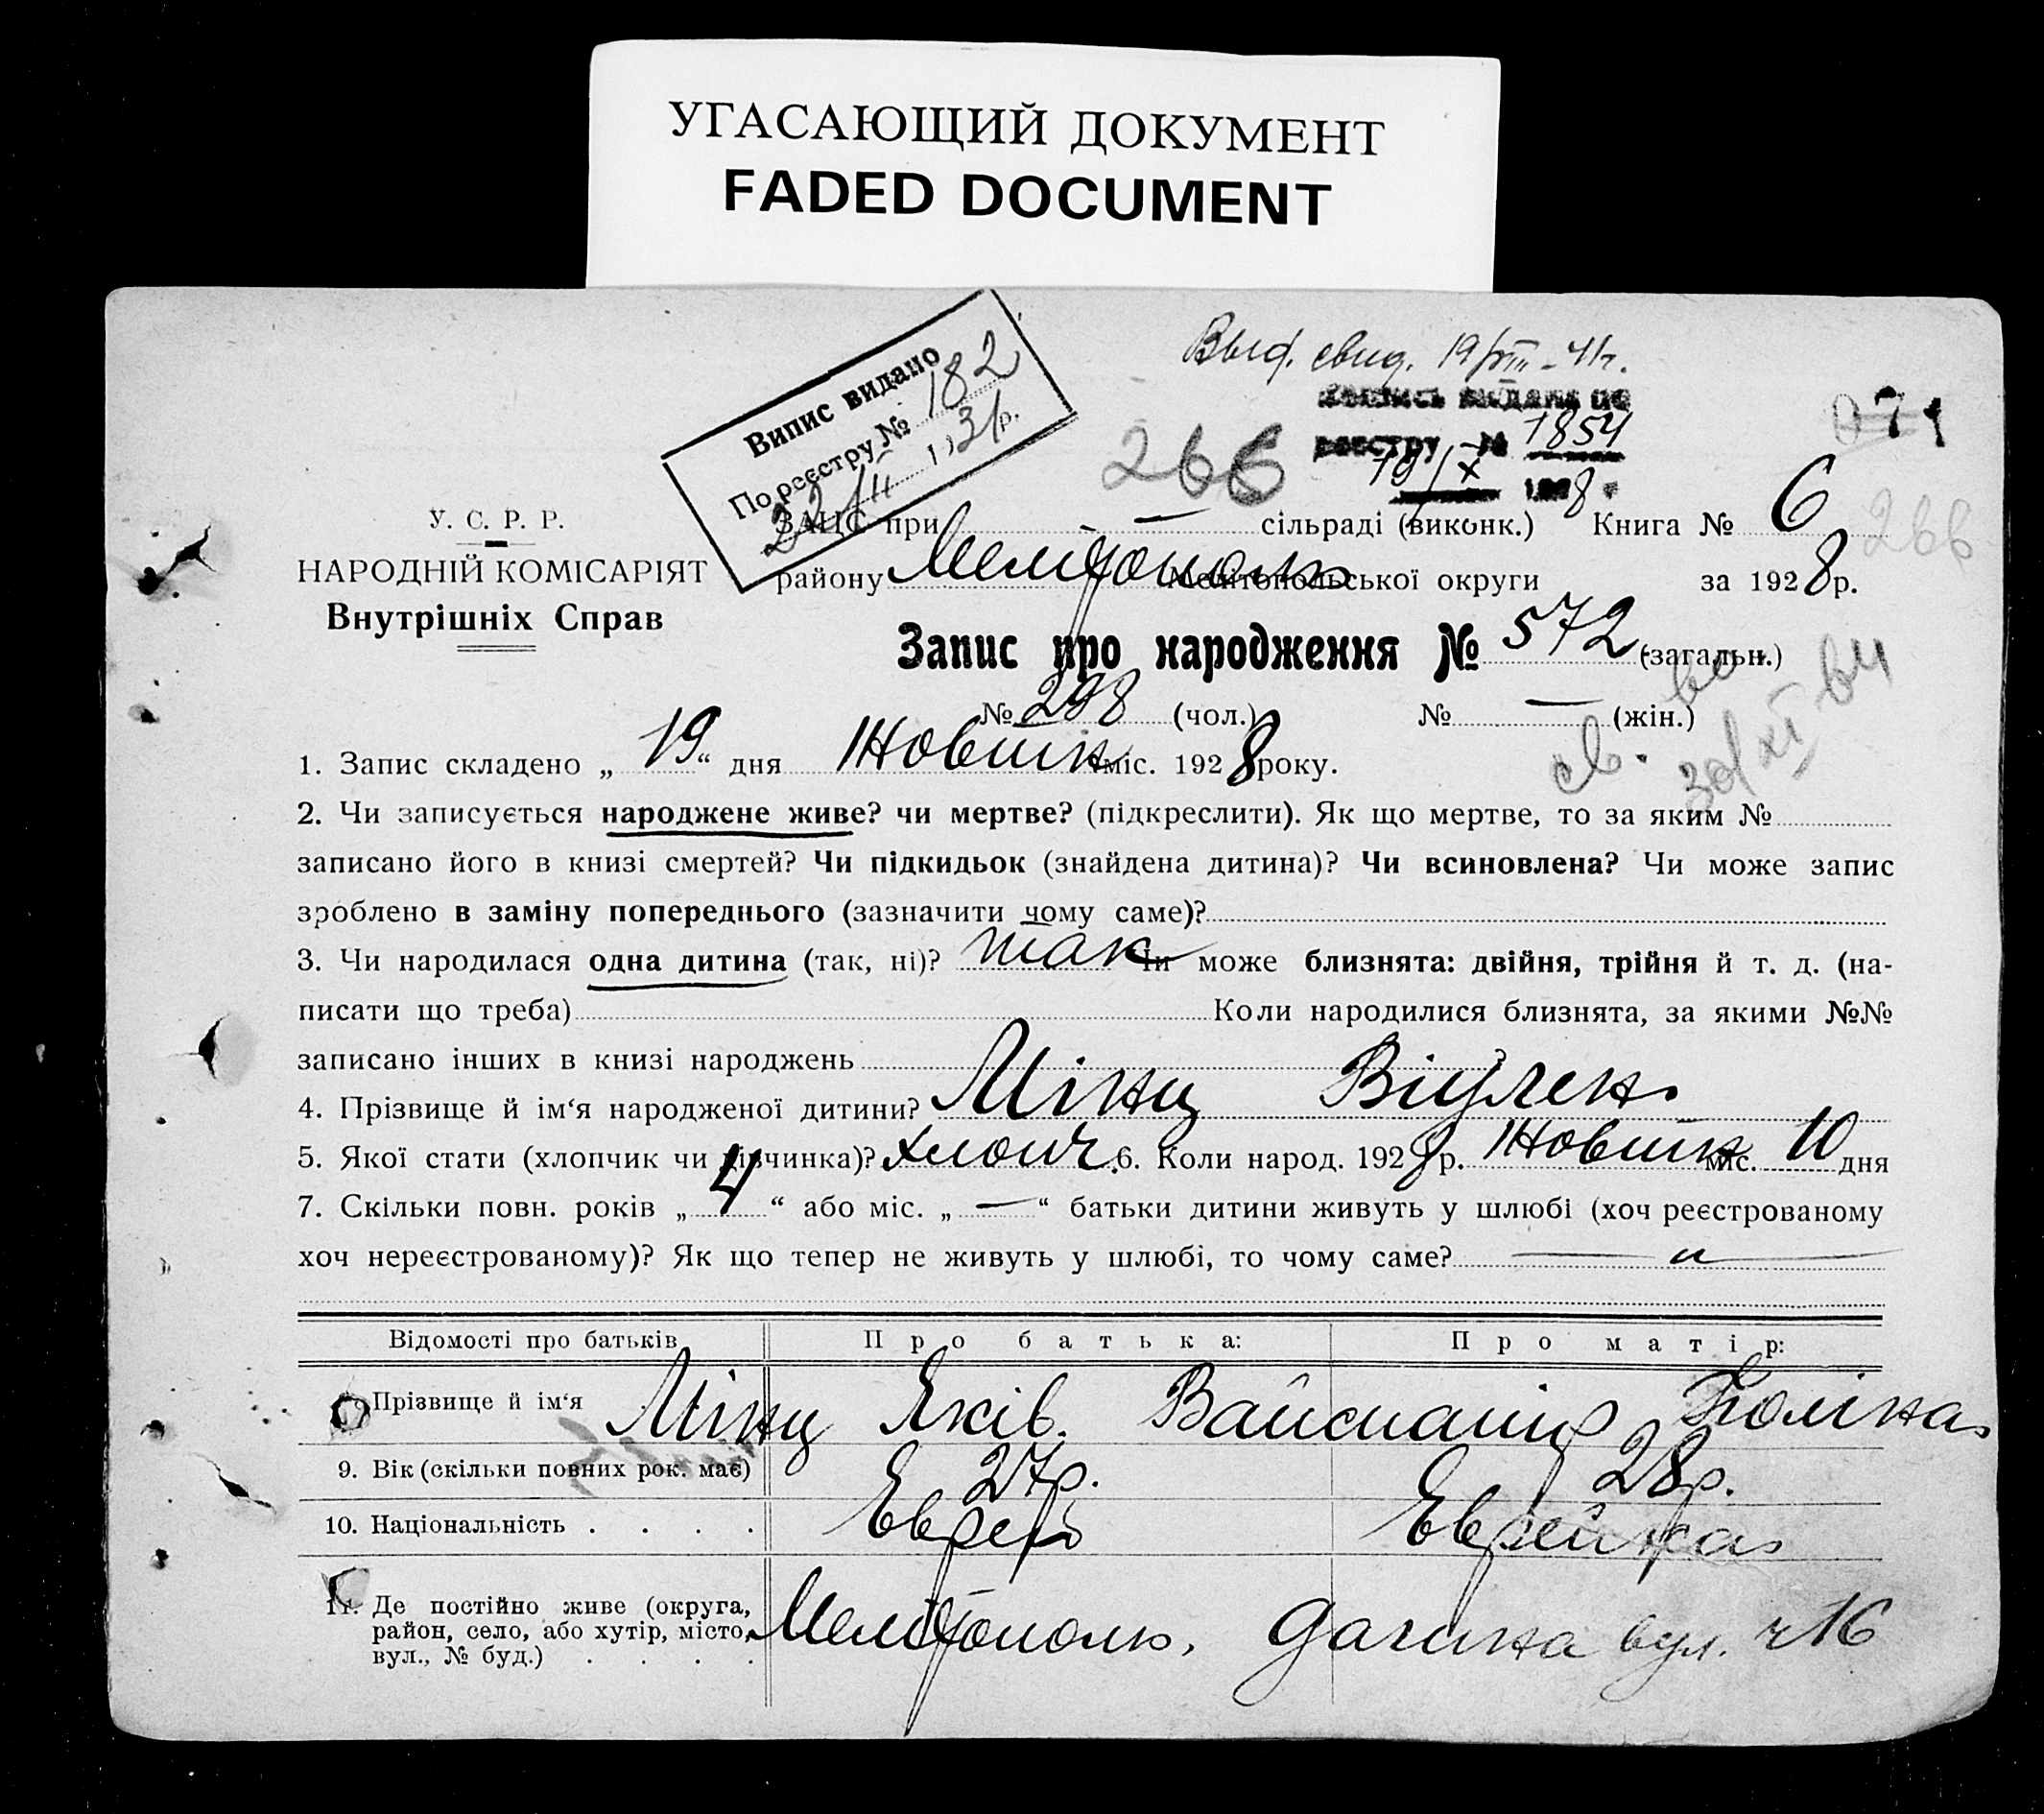 УГАСАЮЩИЙ ДОКУМЕНТ
FADED DOCUMENT
Выд. свид. 19/VIII-41г.
Випис видано
По реєстру № 182
1931р.
видана по
реєстру № 1854
19/X 1928
266
071
У. С. Р. Р.
НАРОДНІЙ КОМІСАРІЯТ
Внутрішніх Справ
ЗАЦС при — сільраді (виконк.) Книга № 6
266
району Мелітополь Мелітопольської округи за 1928р.
Запис про народження № 572 (загальн.)
№ 298 (чол.) № — (жін.)
1. Запис складено „19“ дня Жовтня міс. 1928 року.
св. 30/XI 64
2. Чи записується народжене живе? чи мертве? (підкреслити). Як що мертве, то за яким №
записано його в книзі смертей? Чи підкидьок (знайдена дитина)? Чи всиновлена? Чи може запис
зроблено в заміну попереднього (зазначити чому саме)?
3. Чи народилася одна дитина (так, ні)? так Чи може близнята: двійня, трійня й т. д. (на-
писати що треба) Коли народилися близнята, за якими №№
записано інших в книзі народжень
4. Прізвище й ім‘я народженої дитини? Мінц
5. Якої стати (хлопчик чи дівчинка)? хлопч. 6. Коли народ. 1928р. Жовтня міс. 10 дня
7. Скільки повн. років „4“ або міс. „—“ батьки дитини живуть у шлюбі (хоч реєстрованому
хоч нереєстрованому)? Як що тепер не живуть у шлюбі, то чому саме? — „ —
Відомості про батьків Про батька: Про матір:
Прізвище й ім‘я Мінц Яків. Вайсманш Поліна
9. Вік (скільки повних рок. має) 27р. 28р.
10. Національність . . . . Еврей Еврейка
11. Де постійно живе (округа,
район, село, або хутір, місто,
вул., № буд.) . . . . Мелітополь, Дачна вул. ч 16